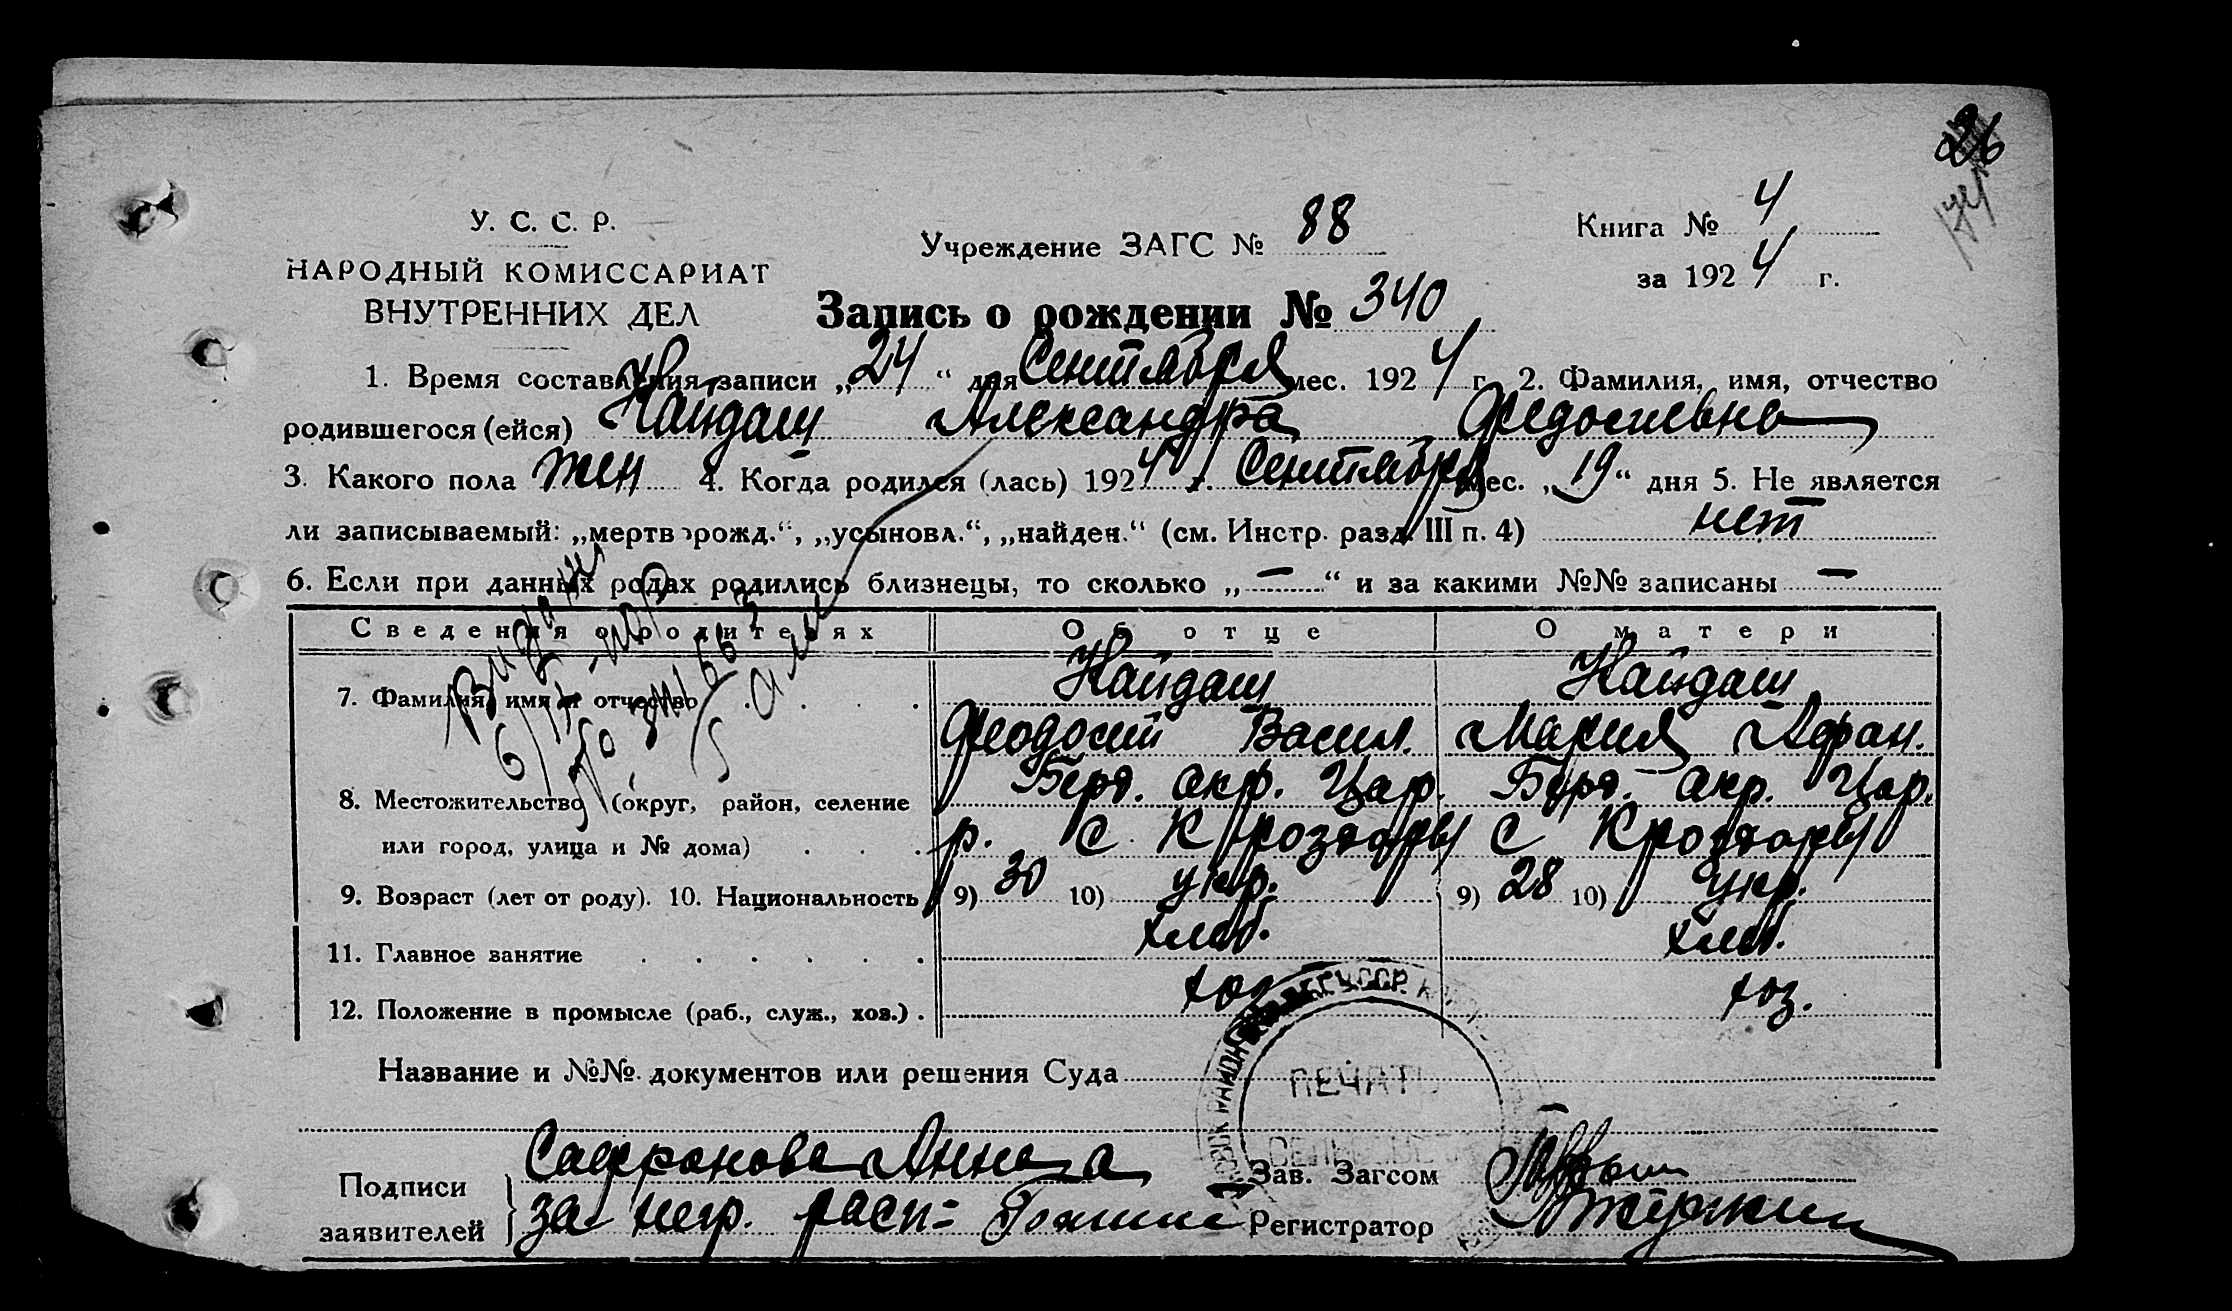 26
174
У. С. С. Р.
НАРОДНЫЙ КОМИССАРИАТ
ВНУТРЕННИХ ДЕЛ
Учреждение ЗАГС № 88
Книга № 4
за 1924 г.
Запись о рождении № 340
1. Время составления записи „24“ дня Сентября мес. 1924 г. 2. Фамилия, имя, отчество
родившегося (ейся) Найдаш Александра Федосиевна
3. Какого пола жен 4. Когда родился (лась) 1924 г. Сентября мес. „19“ дня 5. Не является
ли записываемый: „мертворожд.“, „усыновл.“, „найден.“ (см. Инстр. разд. III п. 4) нет
6. Если при данных родах родились близнецы, то сколько „—“ и за какими №№ записаны —
Сведения о родителях Об отце О матери
7. Фамилия, имя и отчество . . . . Найдаш Найдаш
Феодосий Васил. Мария Афан.
8. Местожительство (округ, район, селение Берд. окр. Цар. Берд. окр. Цар.
или город, улица и № дома) . . . р. С К С
9. Возраст (лет от роду). 10. Национальность 9) 30 10) укр. 9) 28 10) укр.
11. Главное занятие . . . . . . хлеб. хлеб.
12. Положение в промысле (раб., служ., хоз.) . хоз. хоз.
Название и №№ документов или решения Суда
ПЕЧАТЬ
Подписи Сафронова Анна Зав. Загсом
заявителей за негр. расп= Регистратор